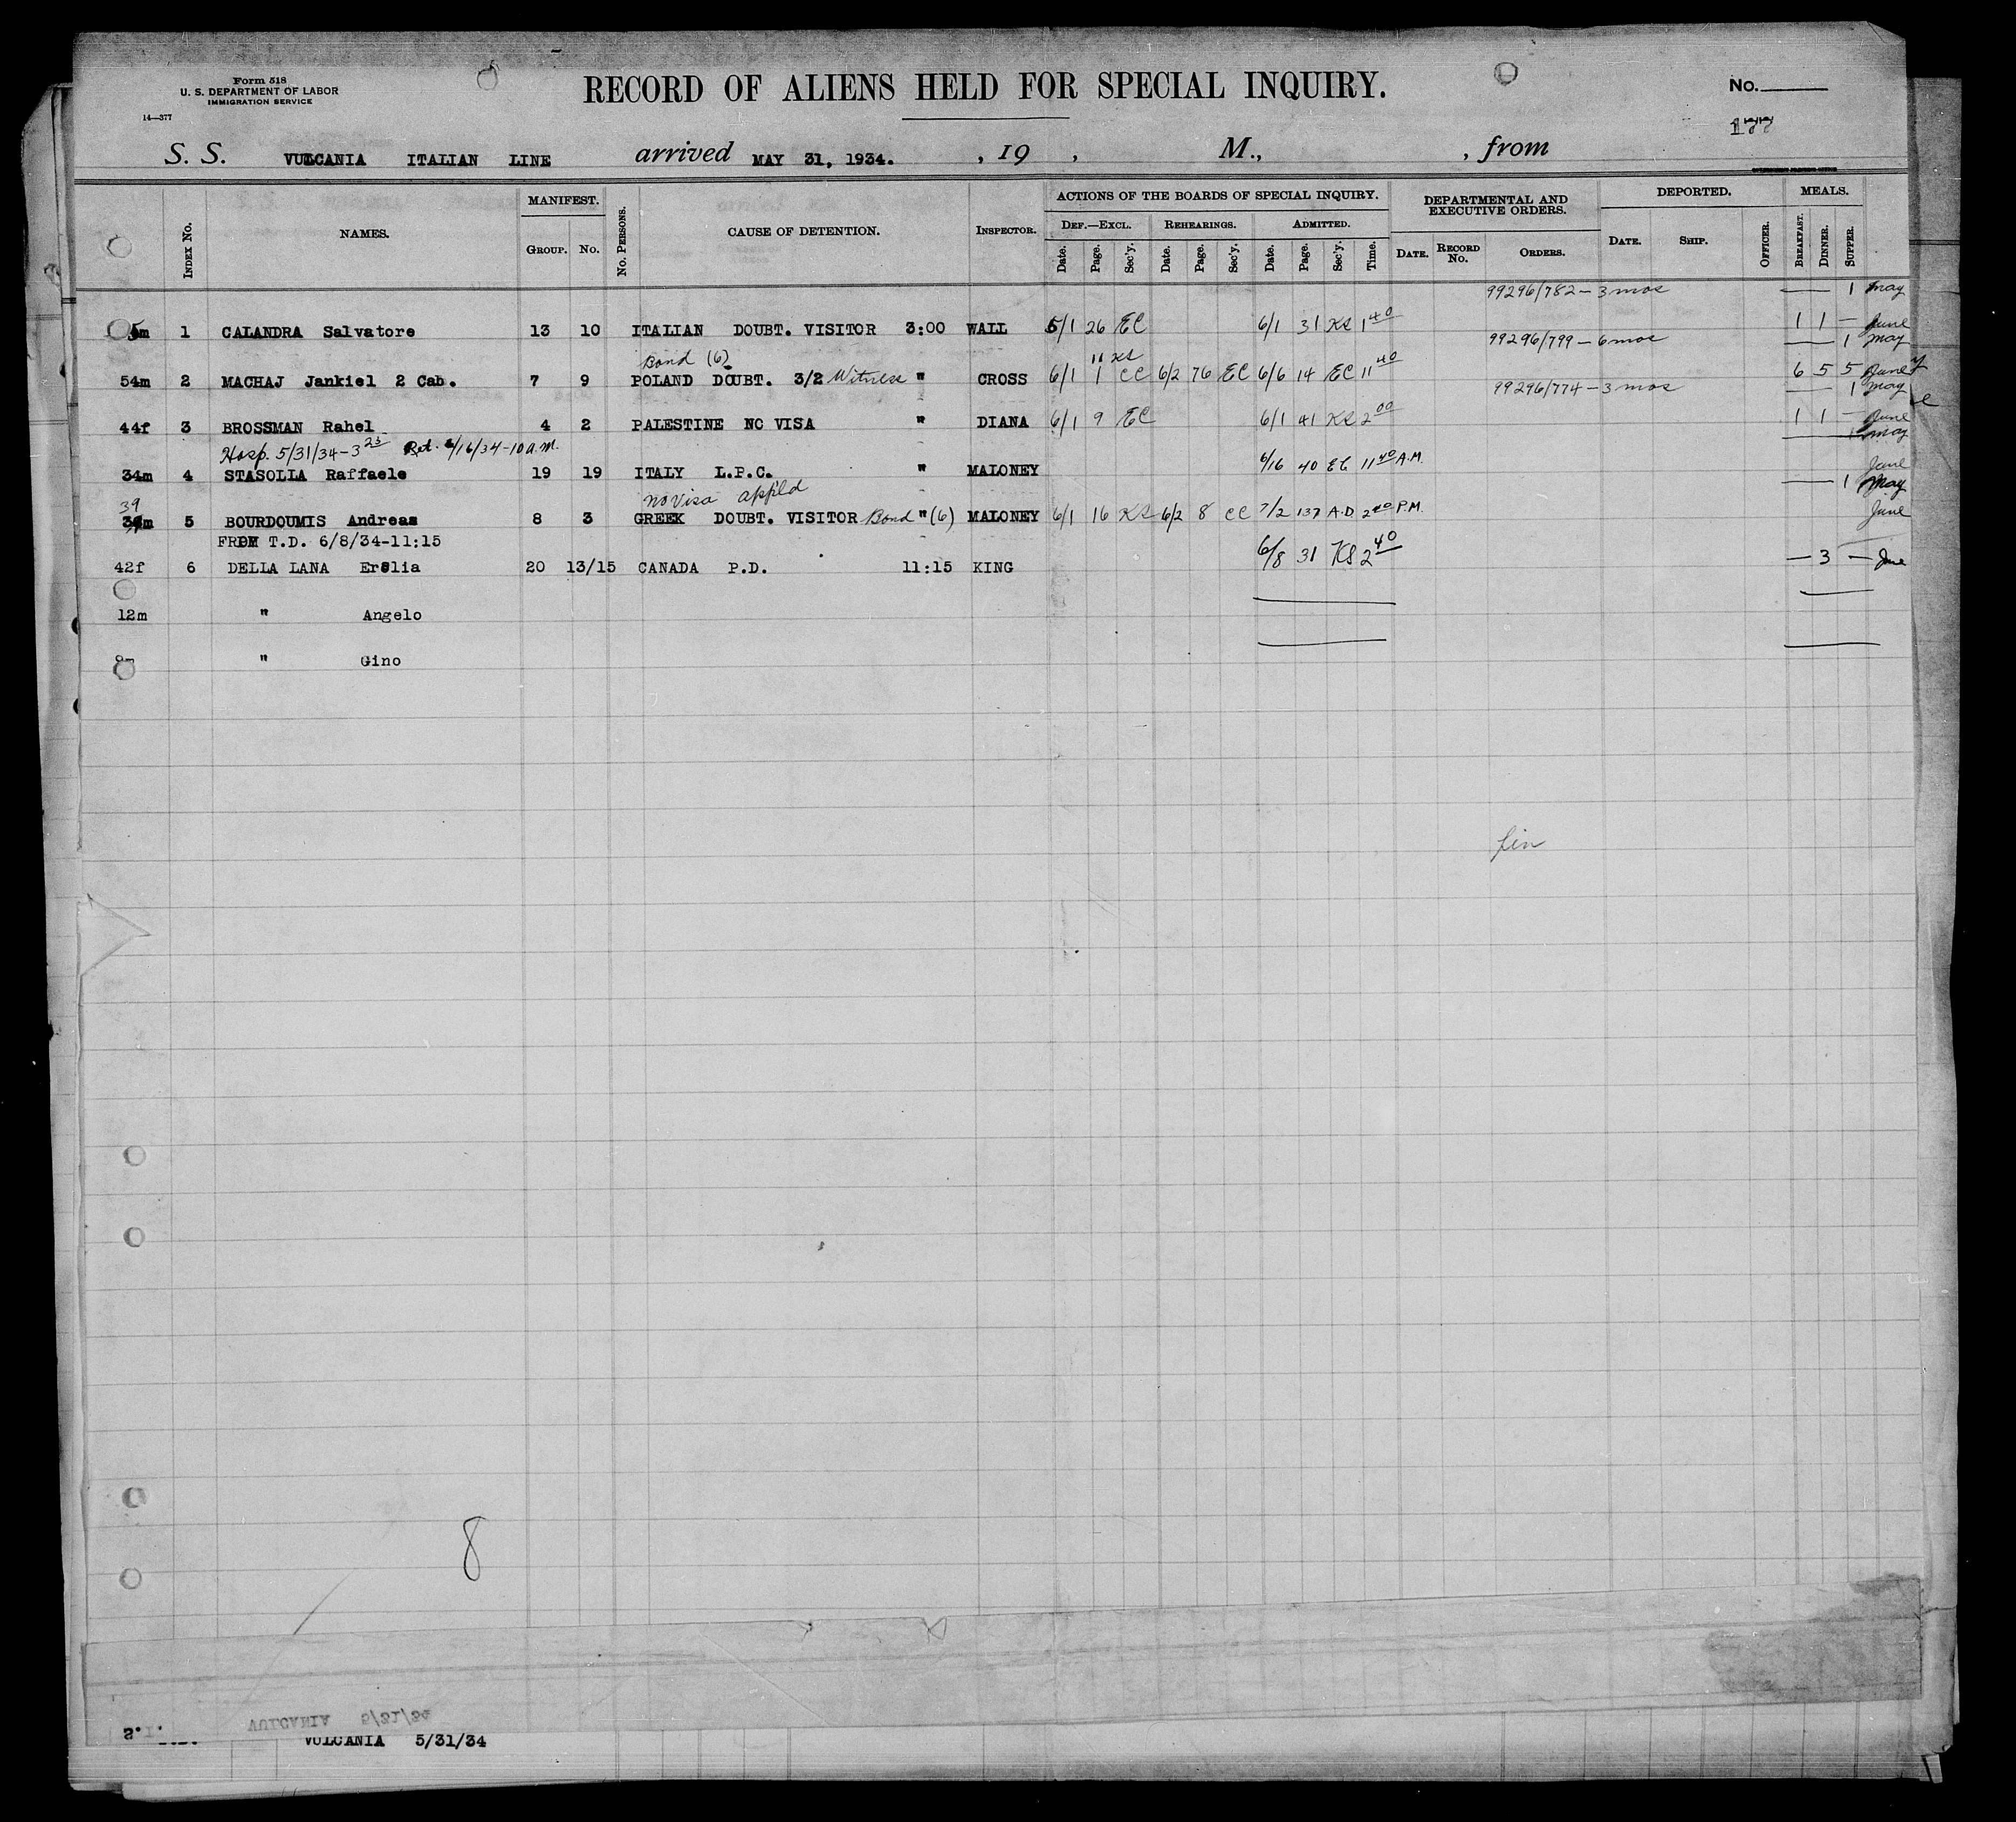 Form 518
U. S. DEPARTMENT OF LABOR
IMMIGRATION SERVICE
14—377
RECORD OF ALIENS HELD FOR SPECIAL INQUIRY.
No.
S. S. VULCANIA ITALIAN LINE arrived MAY 31, 1934. , 19 , M., , from
INDEX No. NAMES. MANIFEST. GROUP. No. No. PERSONS. CAUSE OF DETENTION. INSPECTOR. ACTIONS OF THE BOARDS OF SPECIAL INQUIRY. DEPARTMENTAL AND EXECUTIVE ORDERS. DEPORTED. MEALS.
DEF.—EXCL. REHEARINGS. ADMITTED.
Date. Page. Sec'y. Date. Page. Sec'y. Date. Page. Sec'y. Time. DATE. RECORD No. ORDERS. DATE. SHIP. OFFICER. BREAKFAST. DINNER. SUPPER.
99296/782 — 3 mos — 1 May
m 1 CALANDRA Salvatore 13 10 ITALIAN DOUBT. VISITOR 3:00 WALL 6/1 26 EC 6/1 31 KS 1 40 1 1 — June
99296/799 — 6 mos — 1 May
Bond (6) 11 KS
54m 2 MACHAJ Jankiel 2 Cab. 7 9 POLAND DOUBT. 3/2 Witness " CROSS 6/1 1 CC 6/2 76 EC 6/6 14 EC 11 40 6 5 5 June
99296/774 — 3 mos — 1 May
44f 3 BROSSMAN Rahel 4 2 PALESTINE NO VISA " DIANA 6/1 9 EC 6/1 41 KS 2 00 1 1 — June
Hosp. 5/31/34 - 3 25 Ret. 6/16/34 - 10 a.m. May
34m 4 STASOLLA Raffaele 19 19 ITALY L.P.C. " MALONEY 6/16 40 EC 11 40 A.M. June
39 No Visa app'ld — 1 May
m 5 BOURDOUMIS Andreas 8 3 GREEK DOUBT. VISITOR Bond " (6) MALONEY 6/1 16 KS 6/2 8 CC 7/2 137 A.D 2 40 P.M. June
FROM T.D. 6/8/34-11:15
42f 6 DELLA LANA Erslia 20 13/15 CANADA P.D. 11:15 KING 6/8 31 KS 2 40 — 3 — June
12m " Angelo
" Gino
8
VULCANIA 5/31/34
VULCANIA 5/31/34